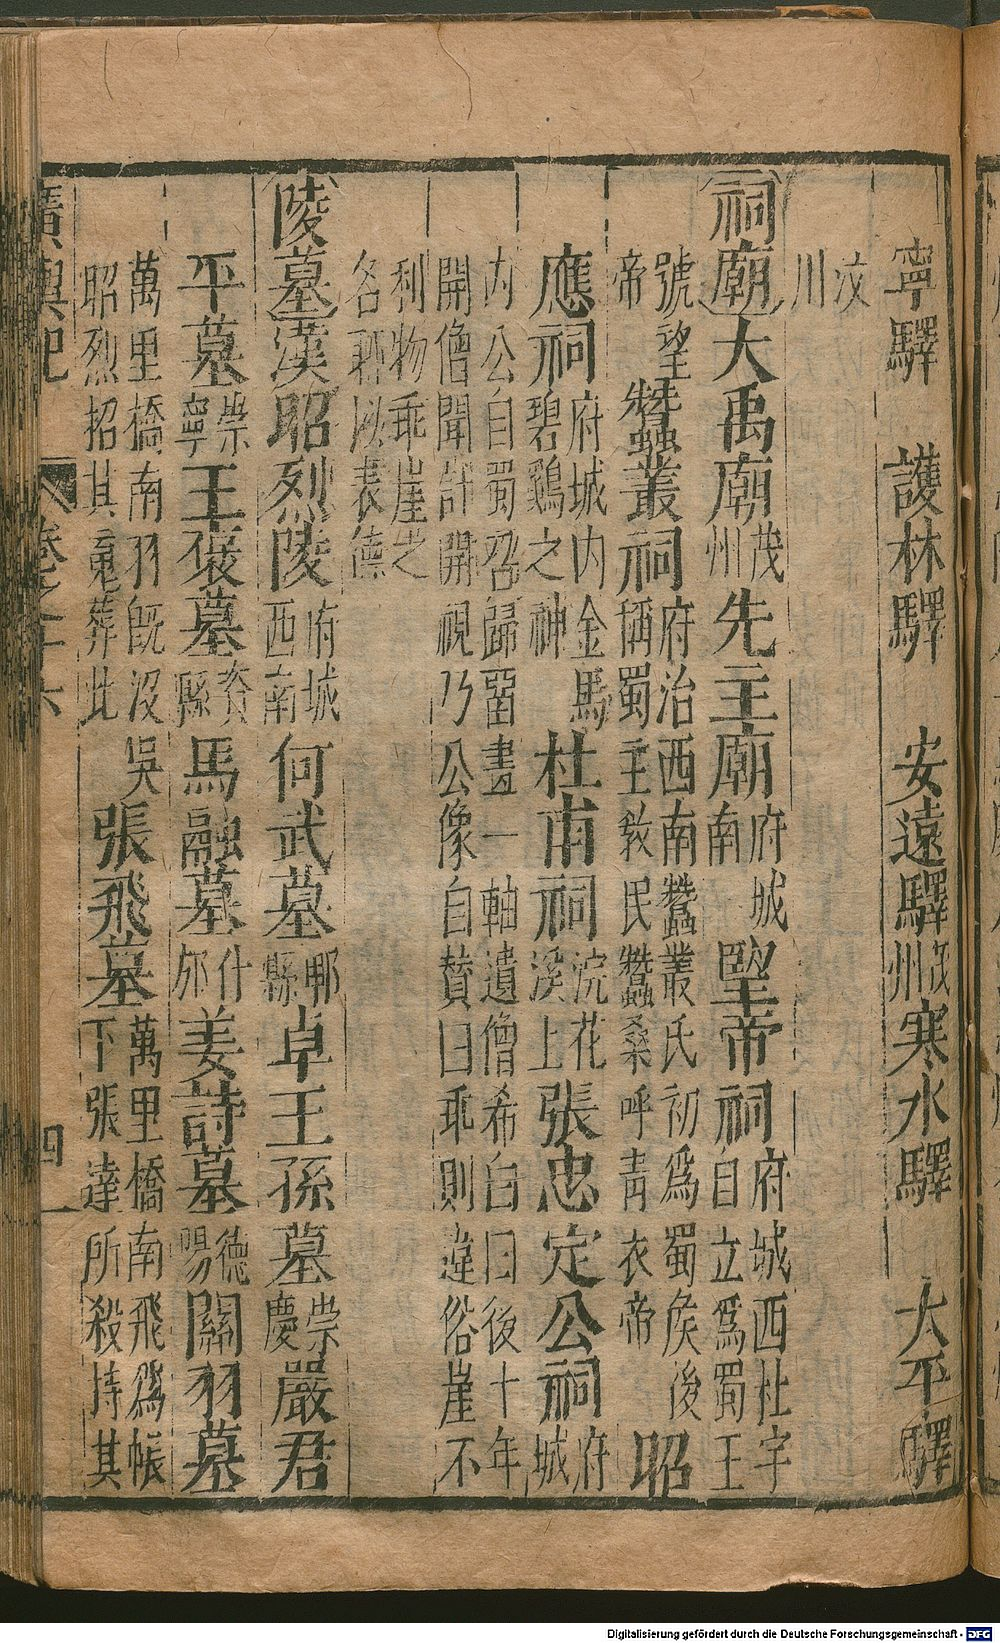 寧驛　護林驛　安遠驛茂州寒水驛　太平驛
汶川
祠廟大禹廟茂州先主廟府城南望帝祠府城西杜宇自立爲蜀王
號望帝蠶叢祠府治西南蠶叢氏初爲蜀侯後稱蜀主教民蠶桑呼青衣帝　昭
應祠府城内金馬碧鷄之神杜甫祠浣花溪上張忠定公祠府城
内公自蜀召歸畱畫一軸遺僧希白曰後十年開僧聞訃開視乃公像自賛曰乖則違俗崖不
利物乖崖之名聊以表德
陵墓漢昭烈陵府城西南何武墓郫縣卓王孫墓崇慶嚴君
平墓崇寧王褒墓資縣馬融墓什邡姜詩墓德陽關羽墓
萬里橋南羽旣没吳昭烈招其䰟葬此張飛墓萬里橋南飛爲帳下張達所殺持其
廣輿記　卷之十六　四
Digitalisierung gefördert durch die Deutsche Forschungsgemeinschaft - DFG